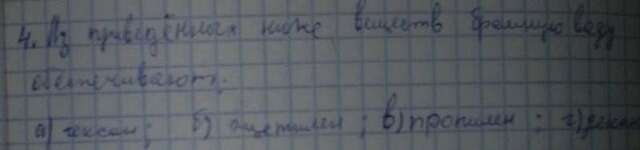 4. Из приведённых ниже веществ бромную воду
обесцвечивают:
а) гексан; б) ацетилен; в) пропилен; г) декан